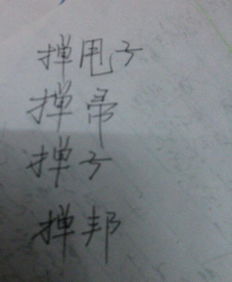 掸甩子
掸帚
掸子
掸邦